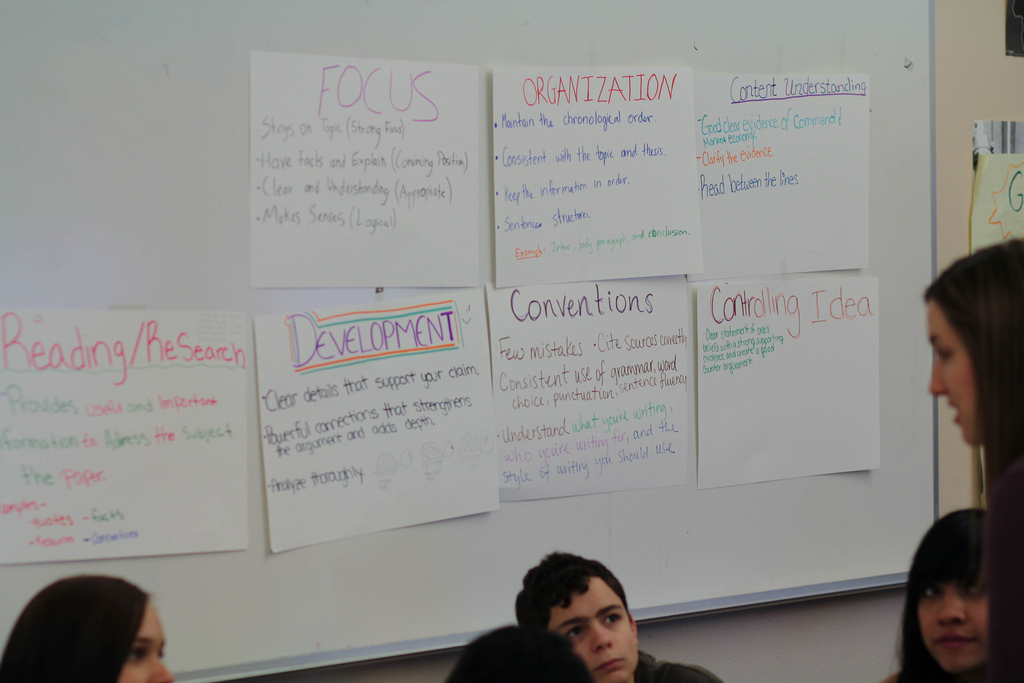 FOCUS
Stays on Topic (Strong Focus)
• Have Facts and Explain (Convincing Position)
• Clear and Understanding (Appropiate)
• Makes Senses (Logical)
ORGANIZATION
• Maintain the chronological order.
• Consistent with the topic and thesis.
• Keep the information in order.
• Sentence structures.
Example: Intro, body paragraph and conclusion.
Content Understanding
- Good clear evidence of Command &
Market economy.
- Clarify the evidence
- Read between the lines
G
Reading/ReSearch
Provides useful and Important
to Address the Subject
the Paper.
- quotes - facts
DEVELOPMENT
• Clear details that support your claim.
• Powerful connections that strengthens
the argument and adds depth.
• Analyze thoroughly
Conventions
Few mistakes • Cite sources correctly
Consistent use of grammar, word
choice, punctuation, sentence fluency
• Understand what you're writing,
who you're writing for, and the
style of writing you should use
Controlling Idea
• Clear statement of ones
beliefs with a strong supporting
evidence and create a good
counter arguement.